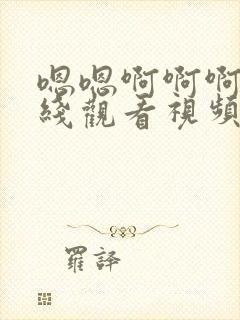 嗯嗯啊啊啊
綫觀看視頻
羅譯